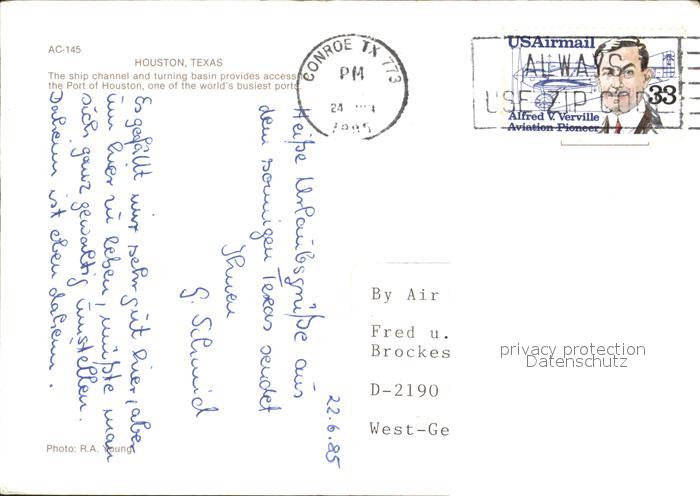 AC-145
HOUSTON, TEXAS
The ship channel and turning basin provides access
the Port of Houston, one of the world's busiest ports
CONROE TX 773
PM
24
1985
ALWAYS
USE ZIP CODE
USAirmail
33
Alfred V. Verville
Aviation Pioneer
22.6.85
Heiße Urlaubsgrüße aus
dem sonnigen Texas sendet
Ihnen
G. Schmid
Es gefällt mir sehr gut hier, aber
um hier zu leben, müßte man
sich ganz gewaltig umstellen.
Daheim ist eben daheim.
By Air
Fred u.
Brockes
D-2190
West-Ge
privacy protection
Datenschutz
Photo: R.A. Young